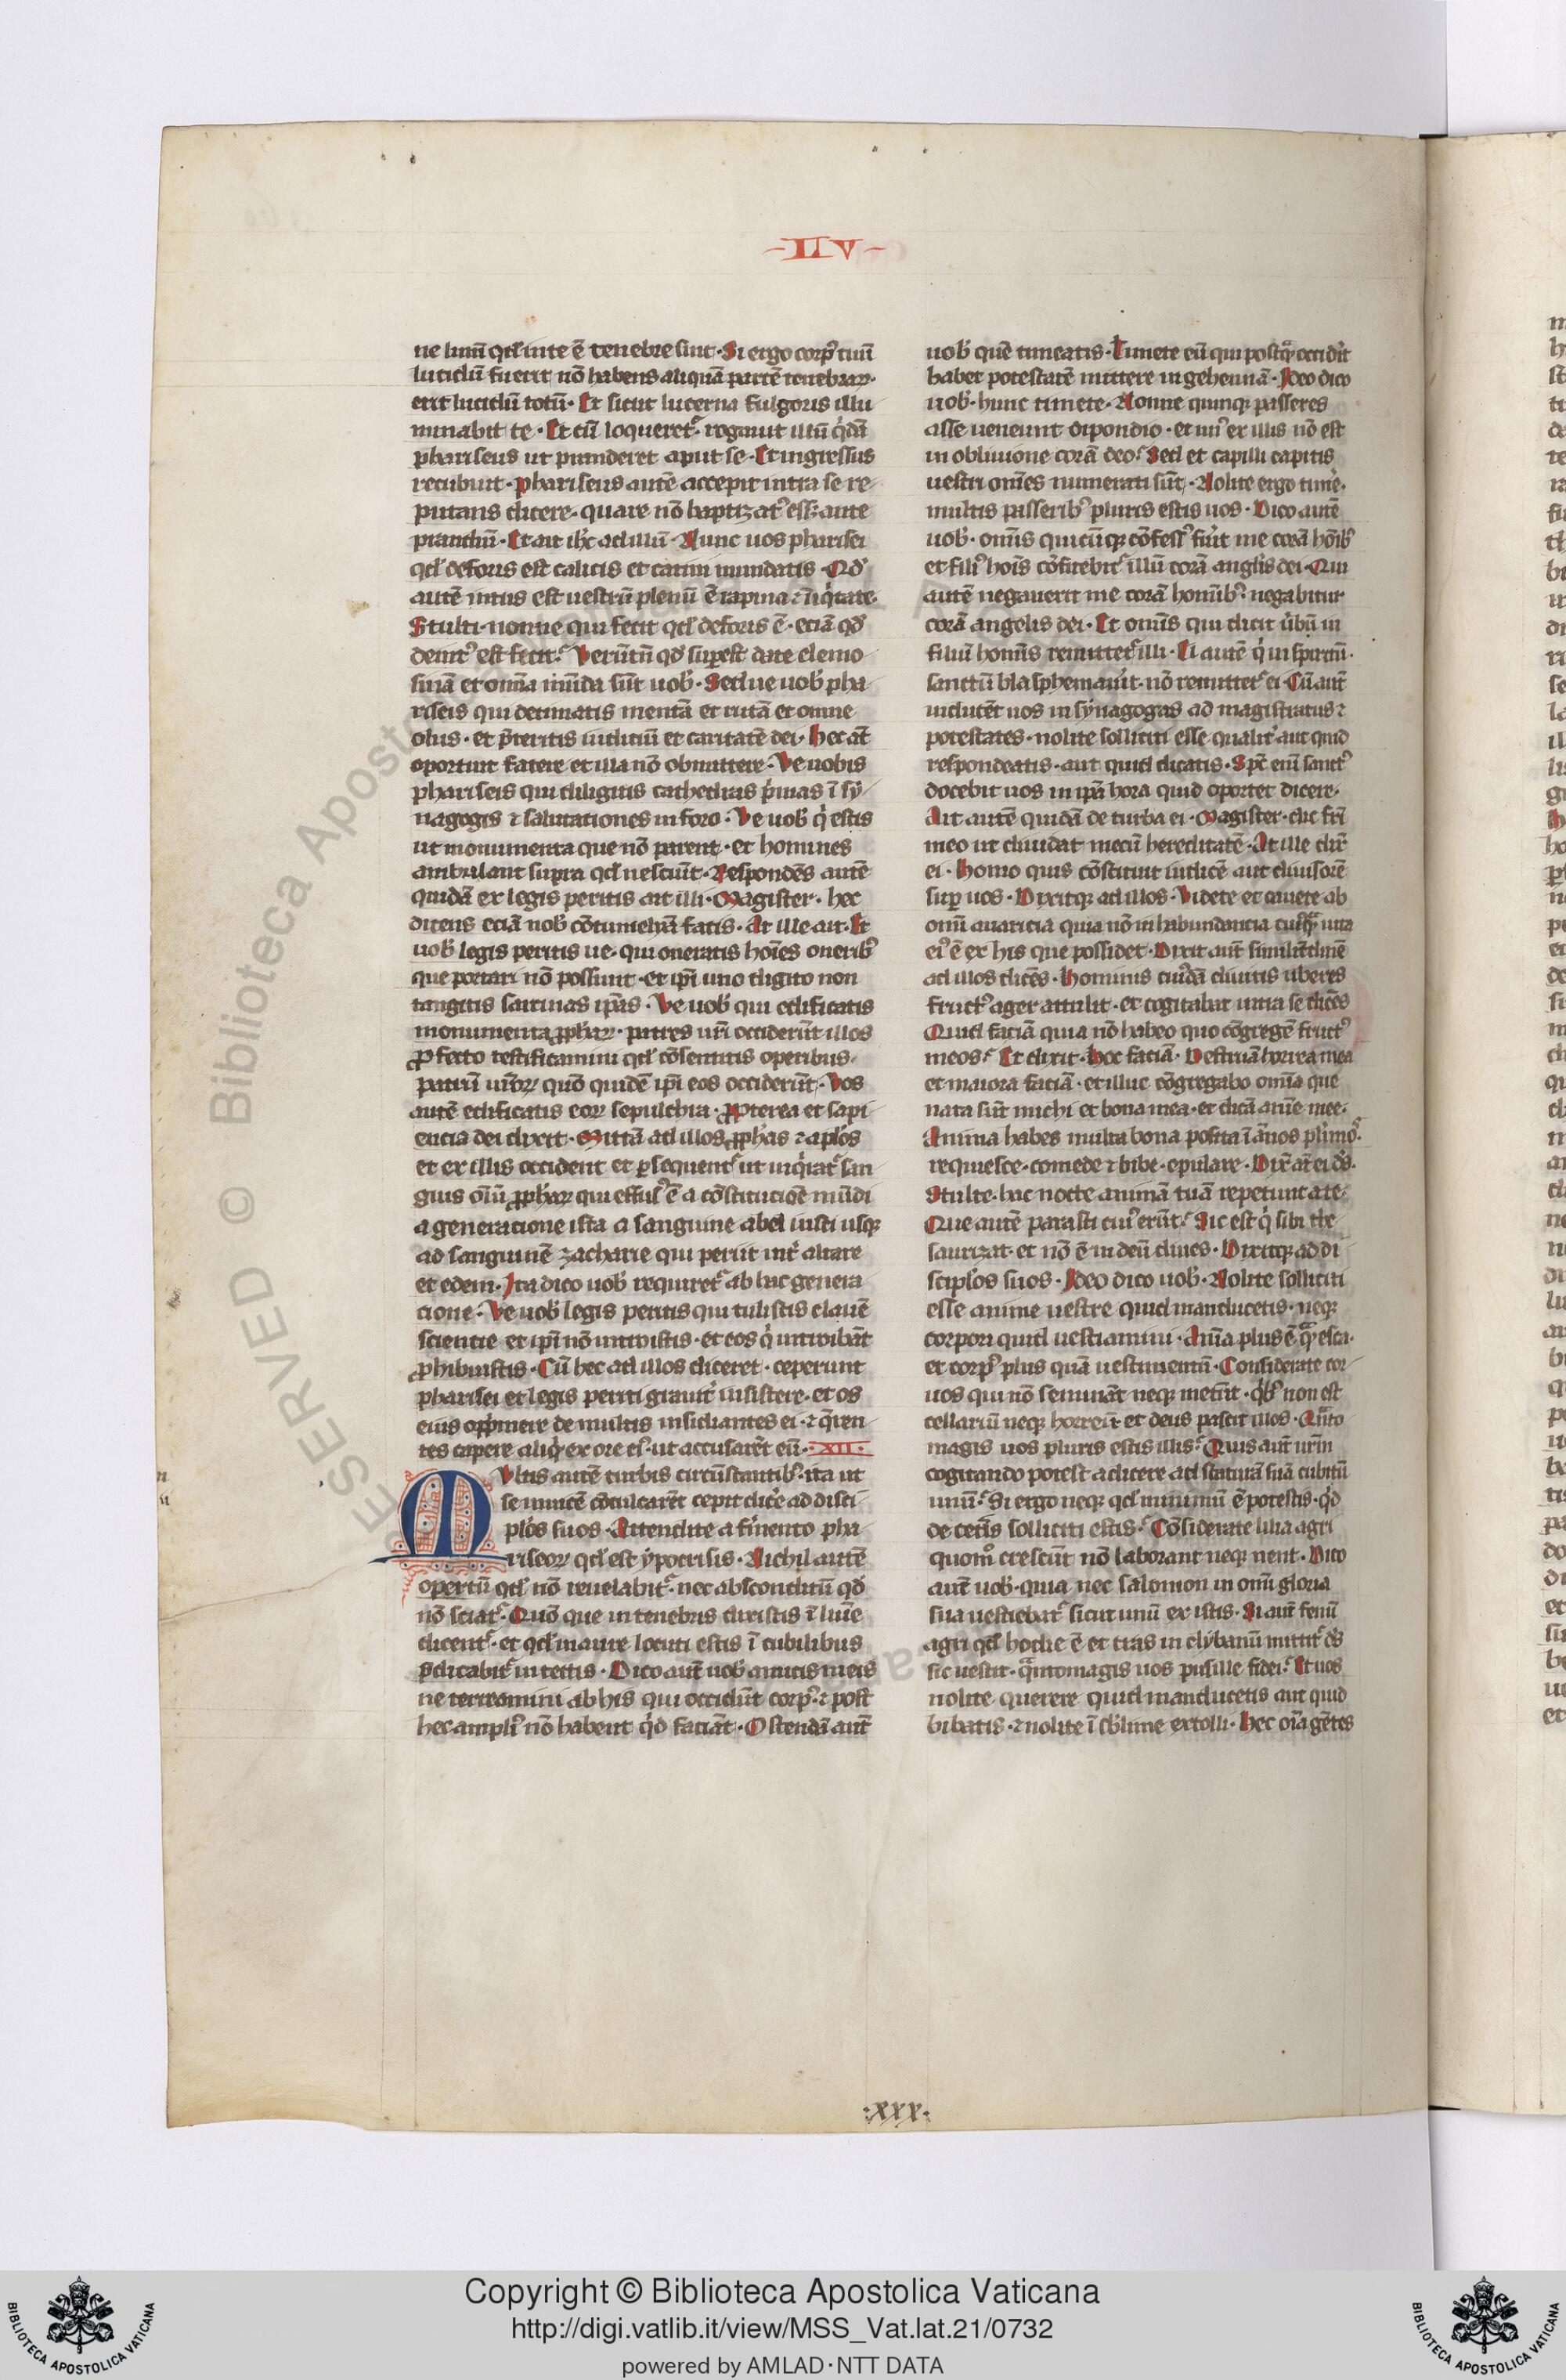 LV
ne lumē qd' in te ē tenebre sint. Si ergo corpꝰ tuū
lucidū fuerit nō habens aliquā partē tenebraꝝ.
erit lucidū totū. Et sicut lucerna fulgoris illu
minabit te. Et cū loqueret᷑. rogauit illū q̇dā
phariseus ut pranderet aput se. Et ingressus
recubuit. Phariseus autē accepit intra se re-
putans dicere. quare nō baptizatꝰ eēt ante
prandiū. Et ait ih̄c ad illū. Nunc uos pharisei
qd' deforis est calicis et catini mundatis. Qd'
autē intus est uestrū plenū ē rapina ⁊ iniq̇tate.
Stulti. nonne qui fecit qd' deforis ē. eciā qd'
deintꝰ est fecit. Verūtn̄ qd' sup̄est date elemo
sinā et omnia mūda sūt uob'. Sed ue uob' pha-
riseis qui decimatis mentā et rutā et omne
olus. et p̄teritis iudiciū et caritatē dei. Hec aūt
oportuit facere et illa nō obmittere. Ve uobis
phariseis qui diligitis cathedras p̄mas ī sy-
nagogis ⁊ salutationes in foro. Ve uob' q̇ estis
ut monumenta que nō parent. et homines
ambulantes supra qd' nesciūt. Respondēs autē
quidā ex legis peritis ait illi. Magister. hec
dicens eciā nob' cōtumeliā facis. At ille ait. Et
uob' legis peritis ue. qui oneratis hoīes oneribꝰ
que portari nō possunt. et ip̄i uno digito non
tangitis sarcinas ip̄as. Ve uob' qui edificatis
monumenta ꝓphaꝝ. patres ur̄i occiderūt illos
ꝓfecto testificamini qd' cōsentitis operibus
patrū ur̄oꝝ quō quidē ip̄i eos occiderūt. Vos
autē edificatis eoꝝ sepulchra. Propterea et sapi
encia dei dixit. Mittā ad illos ꝓphas ⁊ aplōs
et ex illis occident et ꝑsequent᷑ ut inq̇rat᷑ san
guis oīū ꝓphaꝝ qui effusꝰ ē a cōstitucōe mūdi
a generacione ista a sanguine abel iusti usqꝫ
ad sanguinē zacharie qui periit int̄ altare
et edem. Ita dico uob' requiret᷑ ab hac genera
cione. Ve uob' legis peritis qui tulistis clauē
scientie et ip̄i nō introistis. et eos q̇ introibāt
ꝓhibuistis. Cū hec ad illos diceret. ceperunt
pharisei et legis periti grauit̄ insistere. et os
eius opp̄mere de multis insidiantes ei. ⁊ q̄ren
tes capere aliq̇d ex ore eiꝰ. ut accusarēt eū. XII.
Mvltis autē turbis circūstantibꝰ. ita ut
se inuicē cōculcarēt cepit dic̄e ad disci-
plōs suos. Attendite a fm̄ento pha
riseoꝝ qd' est ypocrisis. Nichil autē
opertū qd' nō reuelabit᷑. nec absconditū qd'
nō sciat᷑. Quō que in tenebris dixistis ī lum̄e
dicent᷑. et qd' in aure locuti estis ī cubilibus
p̄dicabit᷑ in tectis. Dico aut̄ uob' amicis meis
ne terreamini ab his qui occidūt corpꝰ. ⁊ post
hec ampliꝰ nō habent q̇d faciāt. Ostendā aut̄
uob' quē timeatis. Timete eū qui postq̄ occidit
habet potestatē mittere in gehennā. Ideo dico
uob'. hunc timete. Nonne quinqꝫ passeres
asse ueneunt dipondio. et unꝰ ex illis nō est
in obliuione corā deo. Sed et capilli capitis
uestri omēs numerati sūt. Nolite ergo time.
multis passeribꝰ pluris estis uos. Dico autē
uob'. omīs quicūqꝫ cōfessꝰ fuit me corā hōibꝰ
et filiꝰ hois cōfitebit᷑ illū corā anglis dei. Qui
autē negauerit me corā hominibꝰ. negabitur
corā angelis dei. Et omīs qui dicit ūbū in
filiū hominis remittet᷑ illi. Ei autē q̇ in spiritū
sanctū blasphemauit. nō remittet᷑ ei. Cū aut̄
inducēt uos in synagogas ad magistratus ⁊
potestates. nolite solliciti esse qualit̄ aut quid
respondeatis. aut quid dicatis. Sp̄c eni sanctꝰ
docebit uos in ipā hora quid oportet dicere.
Ait autē quidā de turba ei. Magister. dic frī
meo ut diuidat mecū hereditatē. At ille dix̄
ei. Homo quis cōstituit iudicē aut diuisorē
sup uos. Dixitqꝫ ad illos. Videte et cauete ab
omī auaricia quia nō in habundancia cuiqꝫ uita
eiꝰ ē ex his que possidet. Dixit aut̄ similitudinē
ad illos dicēs. Hominis cuiꝰdā diuitis uberes
fructꝰ ager attulit. et cogitabat intra se dicēs
Quid faciā quia nō habeo quo cōgregē fructꝰ
meos. Et dixit. Hoc faciā. Destruā horrea mea
et maiora faciā. et illuc cōgregabo omīa que
nata sūt michi et bona mea. et dicā anīe mee.
Anima habes multa bona posita ī ānos pl̄imos.
requiesce. comede ⁊ bibe. epulare. Dix̄ at ei dꝰs.
Stulte. hac nocte animā tuā repetunt a te.
Que autē parasti cuiꝰ erūt. Sic est q̇ sibi the
saurizat. et nō ē in deū diues. Dixitqꝫ ad di
scipl̄os suos. Ideo dico uob'. Nolite solliciti
esse anime uestre quid manducetis. neqꝫ
corpori quid uestiamini. Anīa plus ē q̄ esca.
et corpꝰ plus quā uestimentū. Considerate cor-
uos qui nō semināt neqꝫ metūt. qꝰbꝰ non est
cellariū neqꝫ horreū. et deus pascit illos. Quāto
magis uos pluris estis illis. Quis aut̄ ur̄m
cogitando potest adicere ad staturā suā cubitū
unū. Si ergo neqꝫ qd' minimū ē potestis. q̇d
de ceteris solliciti estis. Cōsiderate lilia agri
quomō crescūt nō laborant neqꝫ nent. Dico
aut̄ uob'. quia nec salomon in omī gloria
sua uestiebat᷑ sicut unū ex istis. Si aut̄ fenū
agri qd' hodie ē et cras in clybanū mittit᷑ dꝰs
sic uestit. quātomagis uos pusille fidei. Et uos
nolite querere quid manducetis aut quid
bibatis. ⁊ nolite ī sublime extolli. Hec oīa gētes
·xxx·
SERVED © Biblioteca Apost
Copyright © Biblioteca Apostolica Vaticana
http://digi.vatlib.it/view/MSS_Vat.lat.21/0732
powered by AMLAD·NTT DATA
BIBLIOTECA APOSTOLICA VATICANA
BIBLIOTECA APOSTOLICA VATICANA